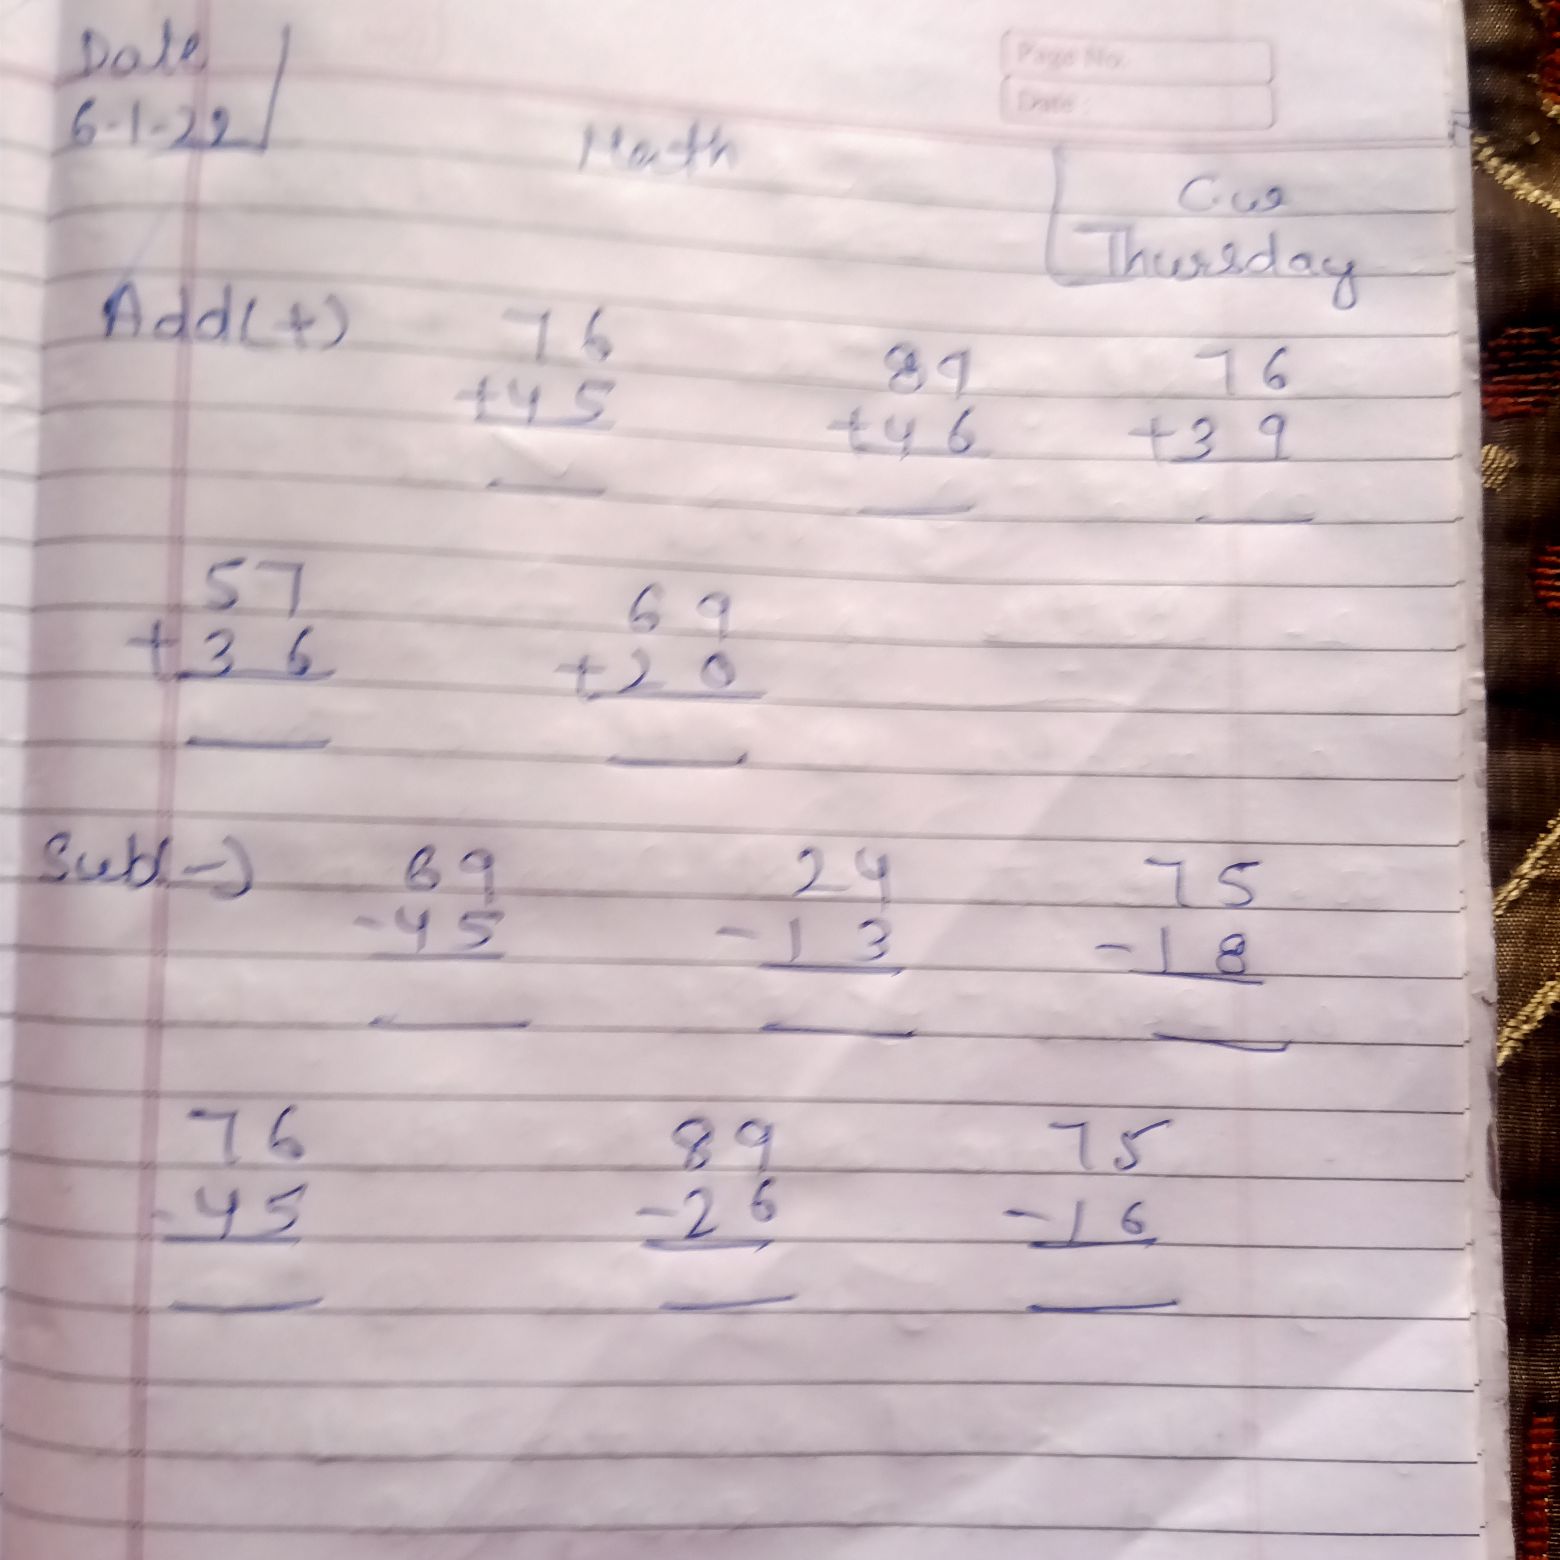 Date
6-1-22
Page No.
Date :
Math
C.w
Thursday
Add(+)
76 89 76
+45 +46 +39
57 69
+36 +20
Sub(-) 69 24 75
-45 -13 -18
76 89 75
-45 -26 -16